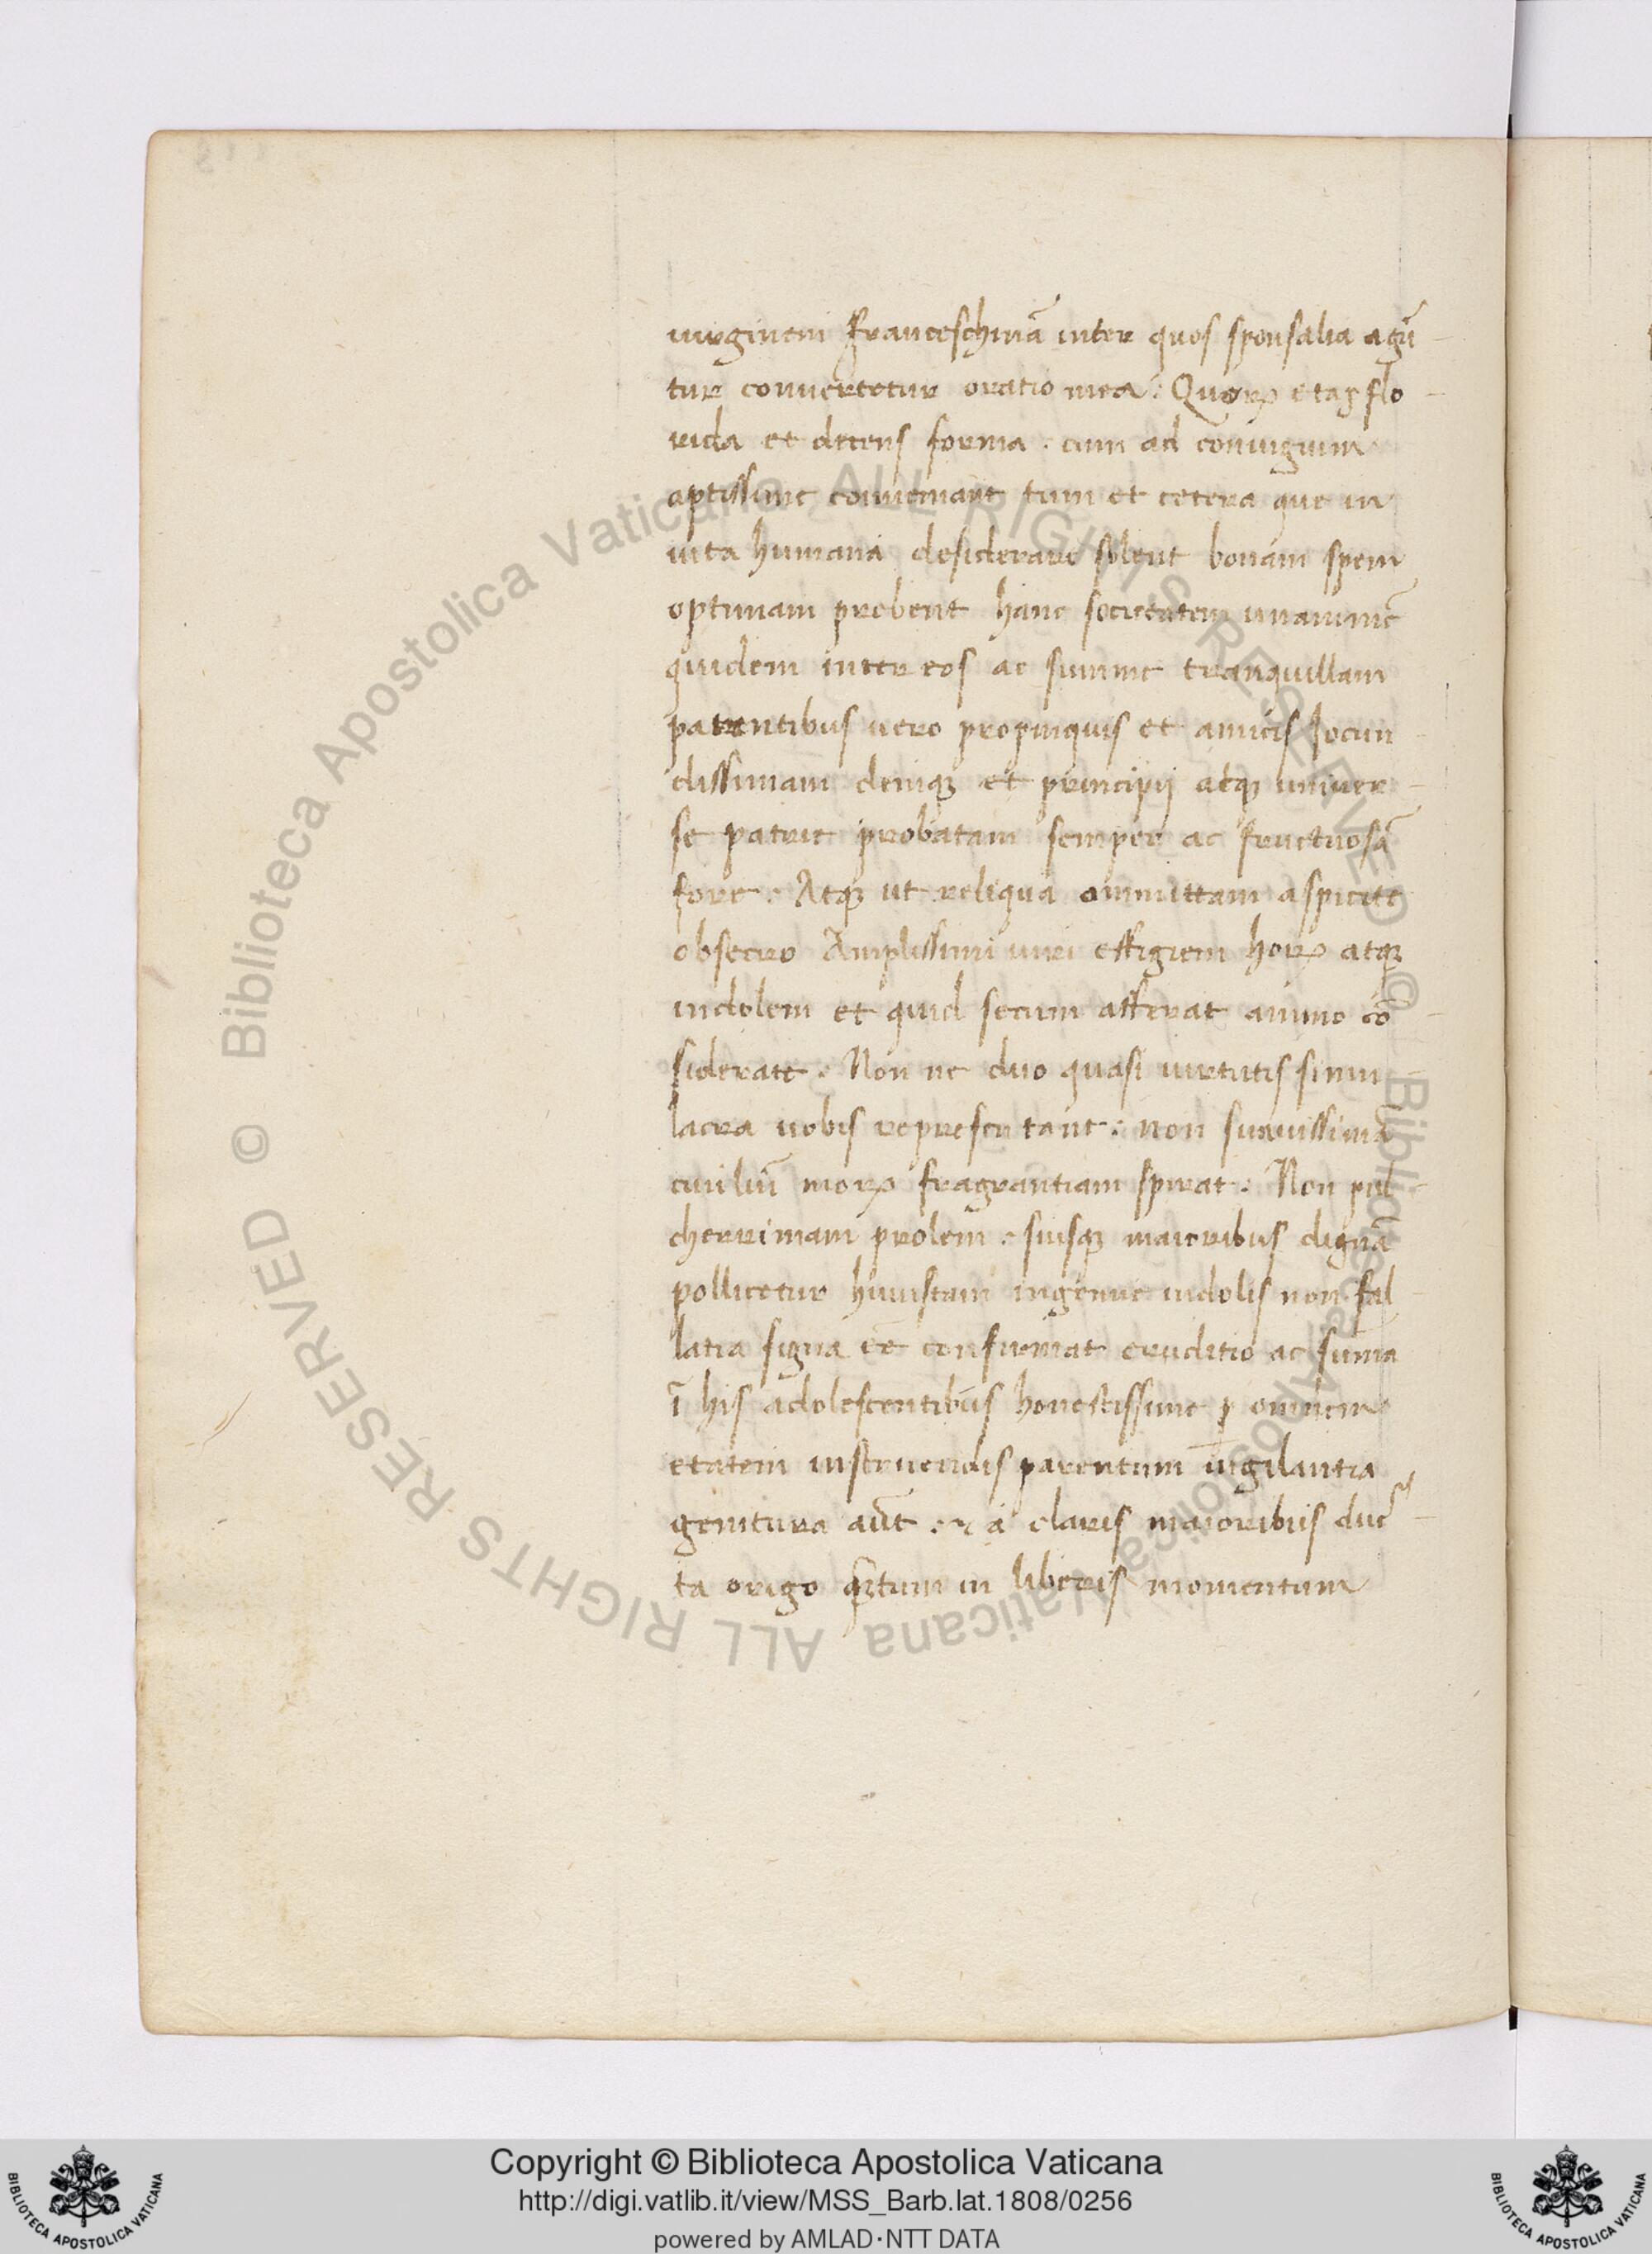 uirginem franceschinā inter quos sponsalia agū-
tur conuertetur oratio mea: Quorꝝ etas flo-
rida et decens forma. cum ad coniugium
aptissime conueniant tum et cetera que in
uita humana desiderari solent bonam spem
optimam prebent hanc societatem unanimē
quidem inter eos ac summe tranquillam
parentibus uero propinquis et amicis Jocun
dissimam deniqꝫ et principij atqꝫ uniuer-
se patrie probatam semper ac fructuosā
fore. Atqꝫ ut reliqua ommittam aspicite
obsecro Amplissimi uiri effigiem horꝝ atqꝫ
indolem et quid secum afferat animo cō-
siderate. Non ne duo quasi uirtutis simu-
lacra uobis representant: non suauissimā
ciuiliū morꝝ fragrantiam spirat: Non pul-
cherrimam prolem. suisqꝫ maioribus dignā
pollicetur huiuscem ingenue indolis non fal-
latia signa eē confirmat eruditio ac sūma
ī his adolescentibus honestissime ꝑ omnem
etatem instruendis parentum uigilantia
genitura aūt. & a claris maioribus duc-
ta origo qrtum in liberis momentum
Copyright © Biblioteca Apostolica Vaticana
http://digi.vatlib.it/view/MSS_Barb.lat.1808/0256
powered by AMLAD·NTT DATA
BIBLIOTECA APOSTOLICA VATICANA
BIBLIOTECA APOSTOLICA VATICANA
© Biblioteca Apostolica Vaticana ALL RIGHTS RESERVED © Biblioteca Apostolica Vaticana ALL RIGHTS RESERVED